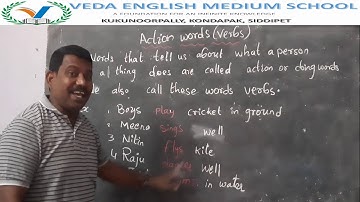 VEDA ENGLISH MEDIUM SCHOOL
A FOUNDATION FOR AN INFINITE KNOWLEDGE
KUKUNOORPALLY, KONDAPAK, SIDDIPET
Action words (Verbs)
words that tell us about what a person
a/thing does are called action or doing words
also call these words verbs.
1 Boys play cricket in ground
2 Meena sings well
3 Nitin flys kite
4 Raju well
in water